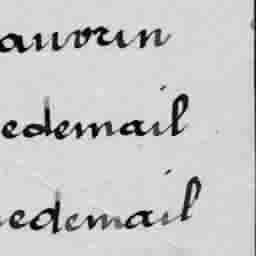 auvrin
edemail
edemail